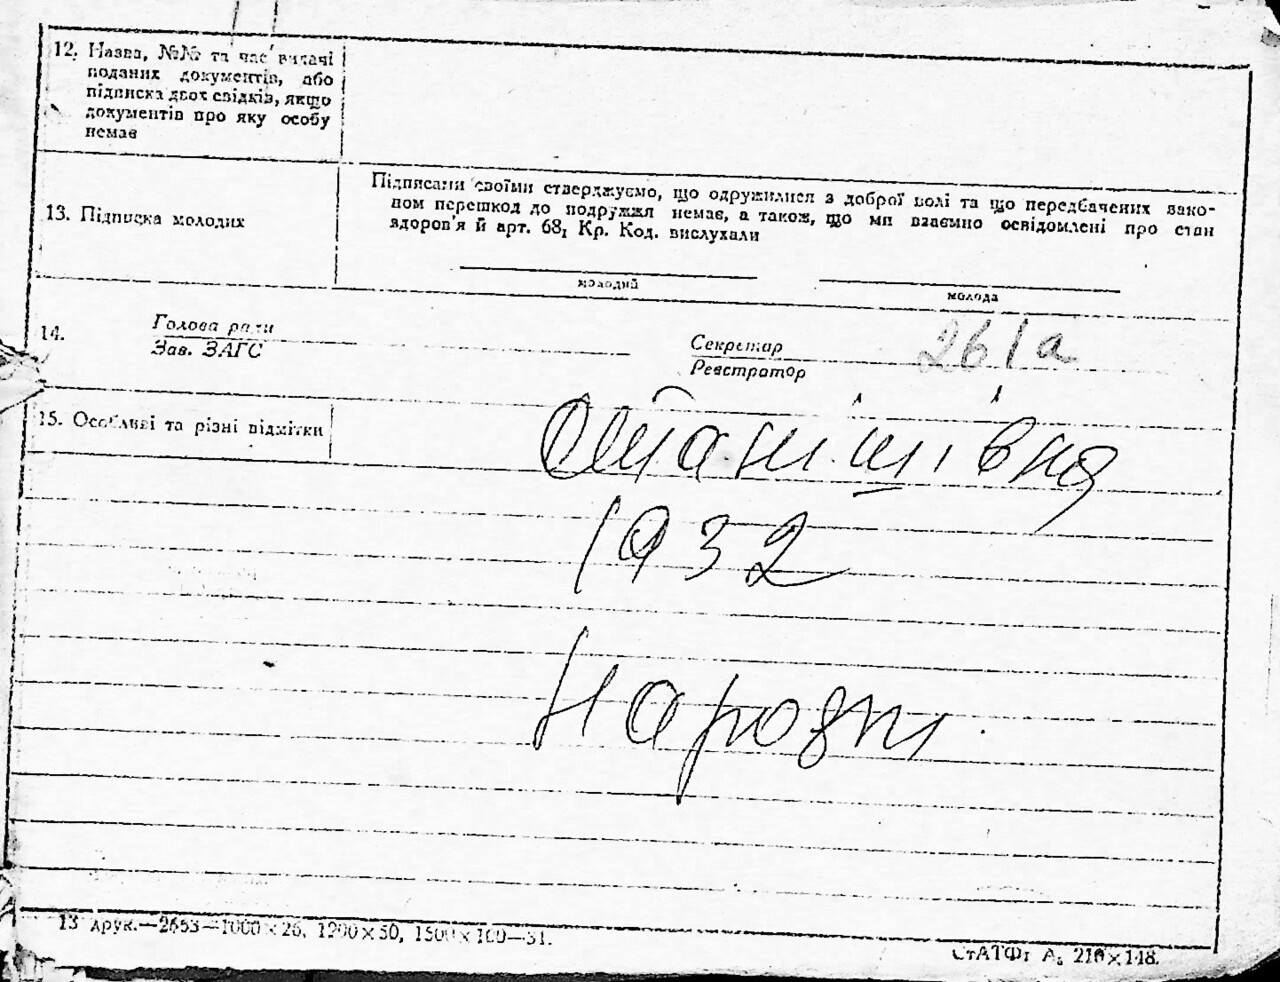 12. Назва, №№ та час видачі
поданих документів, або
підписка двох свідків, якщо
документів про яку особу
немає
13. Підписка молодих
Підписами своїми стверджуємо, що одружилися з доброї волі та що передбачених зако-
ном перешкод до подружжя немає, а також, що ми взаємно освідомлені про стан
здоров'я й арт. 68, Кр. Код. вислухали
молодий
молода
14.
Голова ради
Зав. ЗАГС
Секретар
Реєстратор
261а
15. Особливі та різні відмітки
Степанішівка
1932
Народж
13 друк.—2653—1000×26, 1200×50, 1500×100—31.
СтАТФт А₅ 210×148.